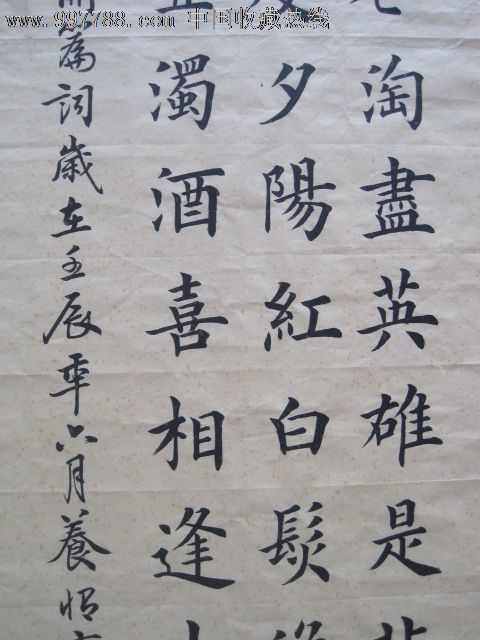 www.997788.com 中国收藏热线
淘盡英雄是
夕陽紅白髮
濁酒喜相逢
篇詞歲在壬辰年六月養